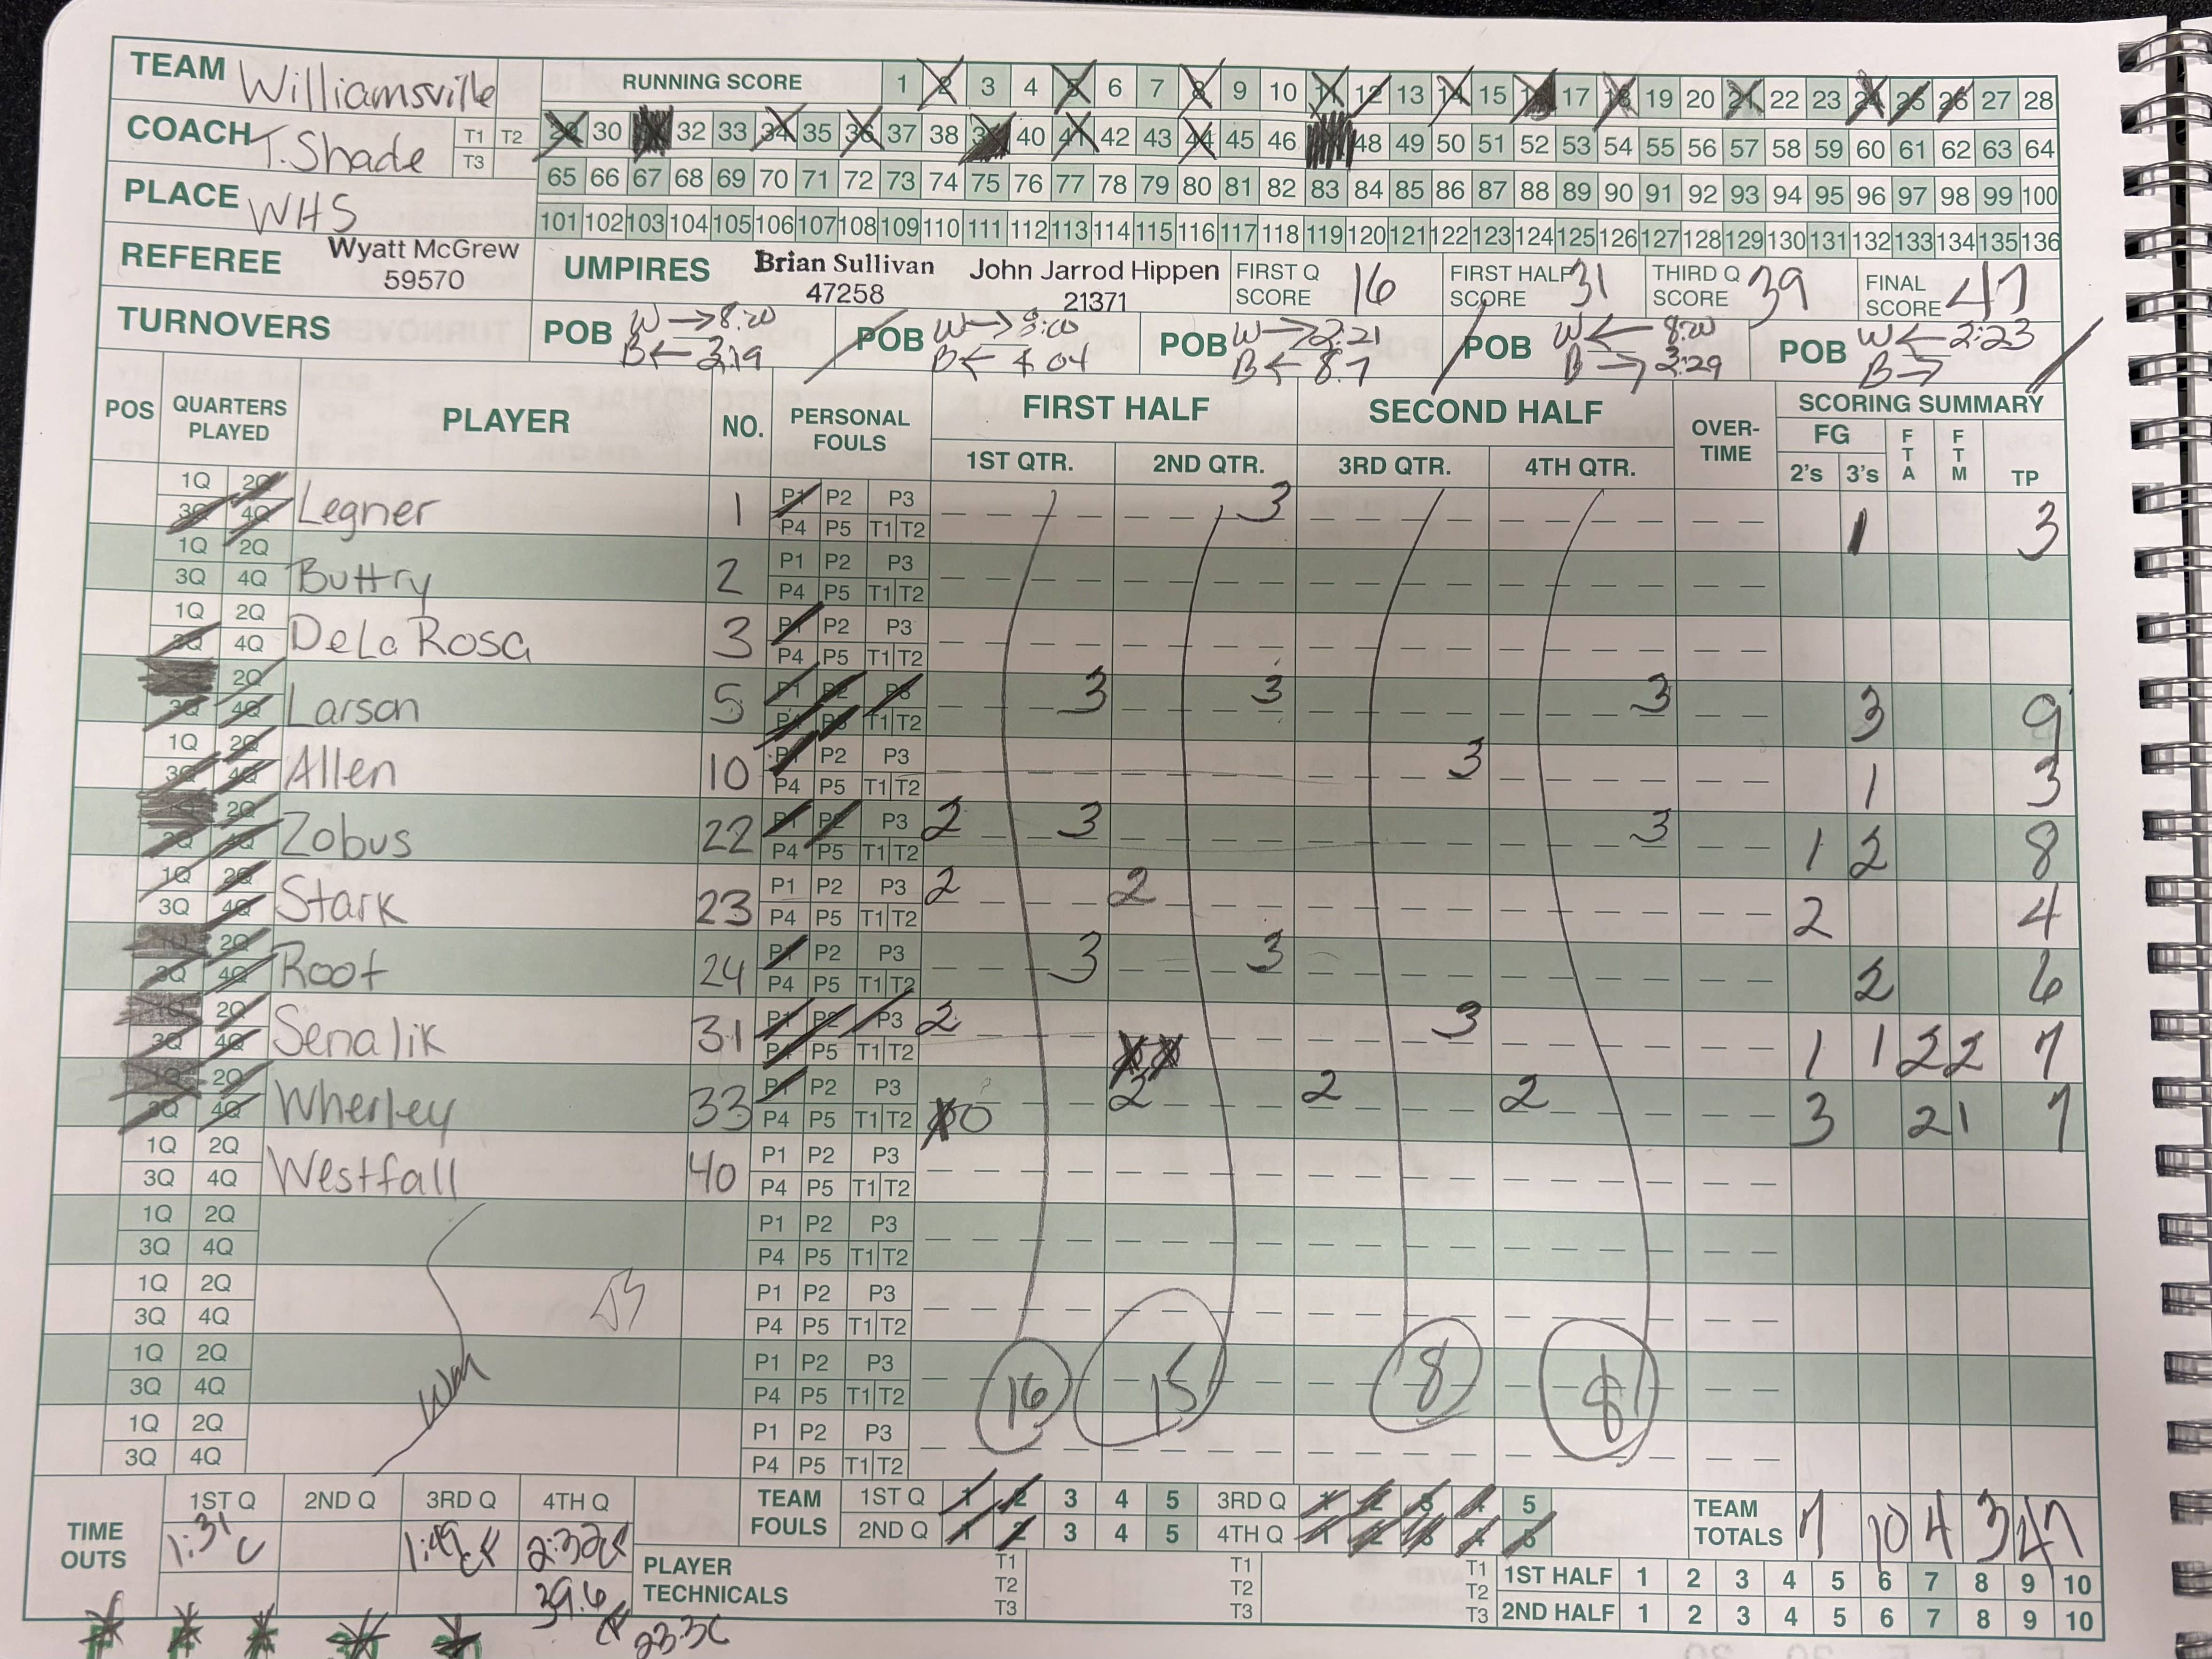 TEAM Williamsville RUNNING SCORE 1 2 3 4 5 6 7 8 9 10 11 12 13 14 15 16 17 18 19 20 21 22 23 24 25 26 27 28
COACH T. Shade T1 T2 T3 29 30 31 32 33 34 35 36 37 38 39 40 41 42 43 44 45 46 48 49 50 51 52 53 54 55 56 57 58 59 60 61 62 63 64
65 66 67 68 69 70 71 72 73 74 75 76 77 78 79 80 81 82 83 84 85 86 87 88 89 90 91 92 93 94 95 96 97 98 99 100
PLACE WHS
101 102 103 104 105 106 107 108 109 110 111 112 113 114 115 116 117 118 119 120 121 122 123 124 125 126 127 128 129 130 131 132 133 134 135 136
REFEREE Wyatt McGrew 59570 UMPIRES Brian Sullivan 47258 John Jarrod Hippen 21371 FIRST Q SCORE 16 FIRST HALF SCORE 31 THIRD Q SCORE 39 FINAL SCORE 47
TURNOVERS POB W → 8:20 B ← 3:19 POB W → B ← POB W → 2:21 B ← 8.7 POB W ← 8:20 B → 3:29 POB W ← 2:23 B →
POS QUARTERS PLAYED PLAYER NO. PERSONAL FOULS FIRST HALF SECOND HALF OVER-TIME SCORING SUMMARY
1ST QTR. 2ND QTR. 3RD QTR. 4TH QTR. FG 2's 3's FTA FTM TP
1Q 2Q 3Q 4Q Legner 1 P1 P2 P3 P4 P5 T1 T2 3 1 3
1Q 2Q 3Q 4Q Buttry 2 P1 P2 P3 P4 P5 T1 T2
1Q 2Q 3Q 4Q DeLa Rosa 3 P1 P2 P3 P4 P5 T1 T2
2Q 3Q 4Q Larson 5 P1 P2 P3 P4 P5 T1 T2 3 3 3 3 9
1Q 2Q 3Q 4Q Allen 10 P1 P2 P3 P4 P5 T1 T2 3 1 3
2Q 3Q 4Q Zobus 22 P1 P2 P3 P4 P5 T1 T2 2 3 3 1 2 8
1Q 2Q 3Q 4Q Stark 23 P1 P2 P3 P4 P5 T1 T2 2 2 2 4
1Q 2Q 3Q 4Q Root 24 P1 P2 P3 P4 P5 T1 T2 3 3 2 6
2Q 3Q 4Q Senalik 31 P1 P2 P3 P4 P5 T1 T2 2 3 1 1 2 2 7
1Q 2Q 3Q 4Q Wherley 33 P1 P2 P3 P4 P5 T1 T2 0 2 2 2 3 2 1 7
1Q 2Q 3Q 4Q Westfall 40 P1 P2 P3 P4 P5 T1 T2
1Q 2Q 3Q 4Q P1 P2 P3 P4 P5 T1 T2
1Q 2Q 3Q 4Q P1 P2 P3 P4 P5 T1 T2
1Q 2Q 3Q 4Q P1 P2 P3 P4 P5 T1 T2 16 15 8 8
1Q 2Q 3Q 4Q P1 P2 P3 P4 P5 T1 T2
TIME OUTS 1ST Q 2ND Q 3RD Q 4TH Q TEAM FOULS 1ST Q 1 2 3 4 5 3RD Q 1 2 3 4 5 TEAM TOTALS 7 10 4 3 47
1:31 C 2ND Q 1 2 3 4 5 4TH Q 1 2 3 4 5
PLAYER TECHNICALS T1 T2 T3 T1 T2 T3 T1 T2 T3 1ST HALF 1 2 3 4 5 6 7 8 9 10
39.6 2ND HALF 1 2 3 4 5 6 7 8 9 10
23.3C